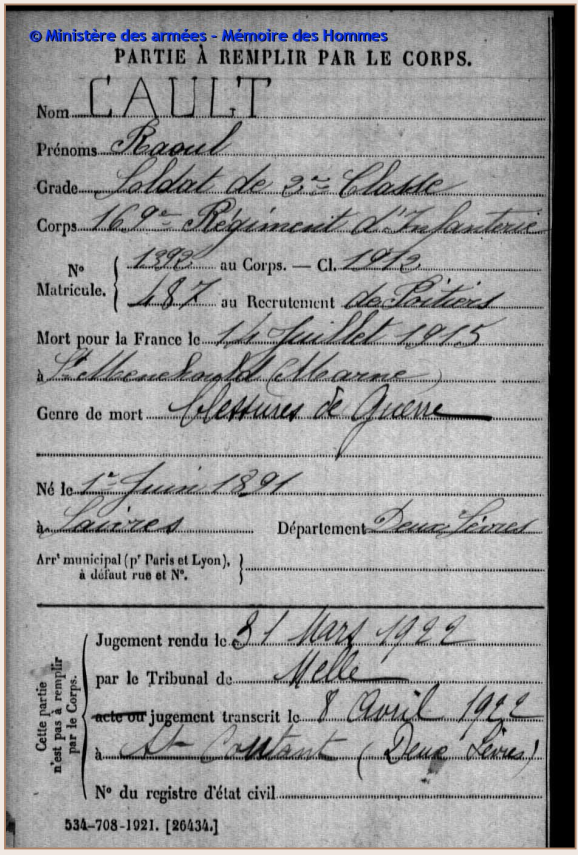 © Ministère des armées - Mémoire des Hommes
PARTIE À REMPLIR PAR LE CORPS.
Nom CAULT
Prénoms Raoul
Grade Soldat de 2me Classe
Corps 169me Régiment d'Infanterie
No Matricule. { 1392 au Corps. — Cl. 1913
487 au Recrutement de Poitiers
Mort pour la France le 14 Juillet 1915
à Ste Menehould (Marne)
Genre de mort Blessures de Guerre
Né le 1er Juin 1891
à Département Deux Sèvres
Arrt municipal (pr Paris et Lyon),
à défaut rue et No.
Cette partie n'est pas à remplir par le Corps.
Jugement rendu le 31 Mars 1922
par le Tribunal de Melle
acte ou jugement transcrit le 8 Avril 1922
à St Coutant (Deux Sèvres)
No du registre d'état civil
534-708-1921. [26434.]